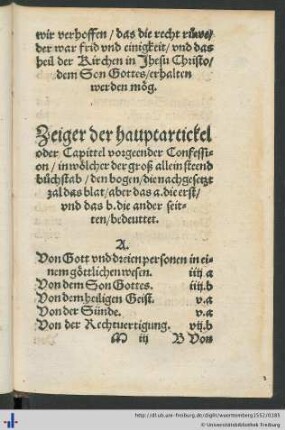 wir verhoffen / das die recht růwe /
der war frid vnd einigkeit / vnd das
heil der Kirchen in Jhesu Christo /
dem Son Gottes / erhalten
werden mög.
Zeiger der hauptartickel
oder Capittel vorgeender Confessi-
on / in wölcher der groß allein steend
bůchstab / den bogen / die nachgesetzt
zal das blat / aber das a. die erst /
vnd das b. die ander seit-
ten / bedeuttet.
A.
Von Gott vnd dreien personen in ei-
nem göttlichen wesen. iiij.a
Von dem Son Gottes. iiij.b
Von dem heiligen Geist. v.a
Von der Sünde. v.a
Von der Rechtuertigung. vij.b
M iij B Von
http://dl.ub.uni-freiburg.de/diglit/wuerttemberg1552/0183
© Universitätsbibliothek Freiburg